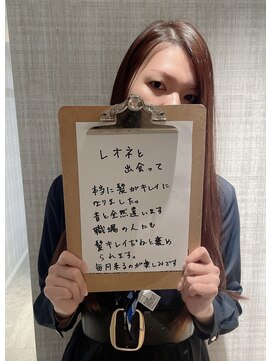 レオネと
出会って
本当に髪がキレイに
なりました。
昔と全然違います
職場の人にも
髪キレイだねと褒め
られます。
毎月来るのが楽しみです